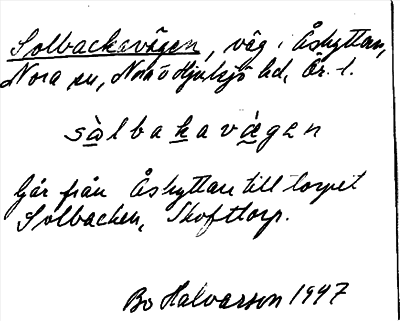 Solbackavägen, väg i Åshyttan,
Nora sn, Nora o Hjulsjö hd, Ör. l.
sòlbakavä̀gen
Går från Åshyttan till torpet
Solbacken, Skofttorp.
Bo Halvarson 1947